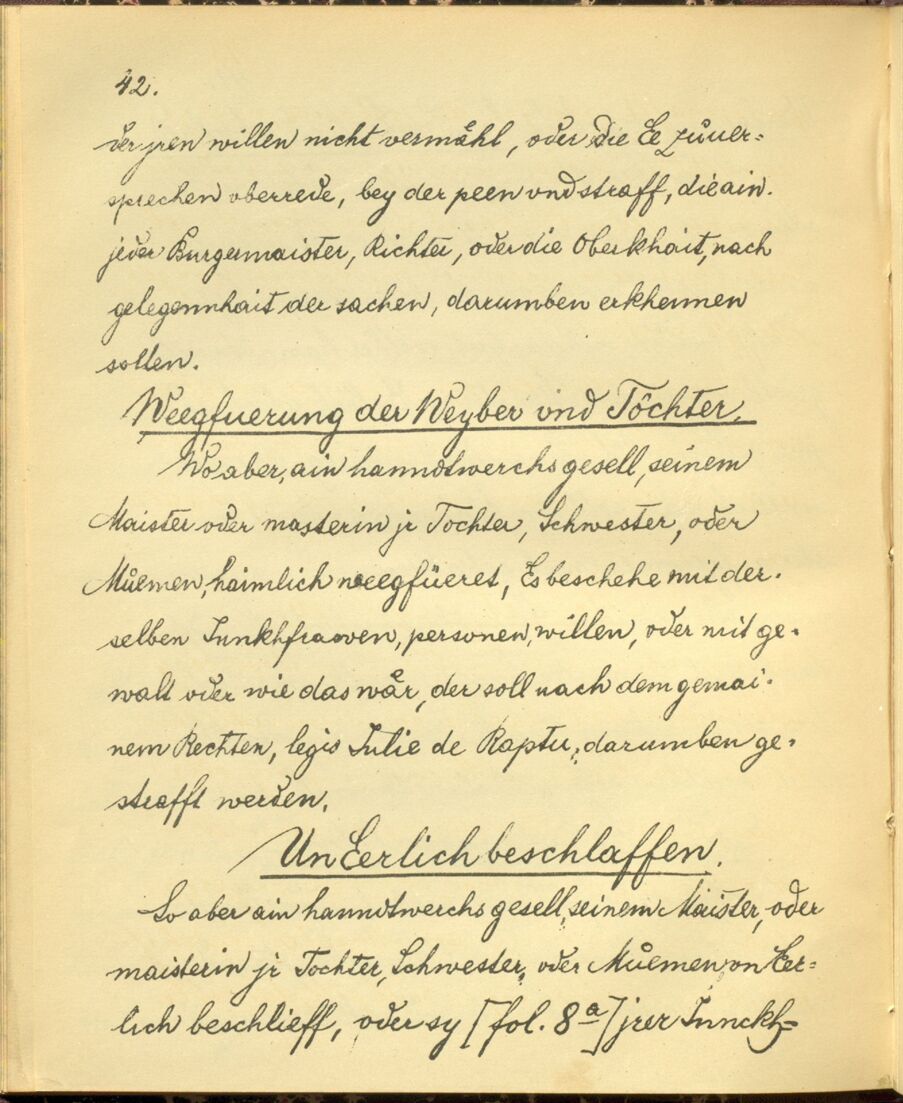 42.
der jren willen nicht vermåhl, oder die Ee zůuer=
sprechen vberrede, bey der peen vnd straff, die ain.
jeder Burgermaister, Richter, oder die Oberkhait, nach
gelegennhait der sachen, darumben erkhennen
sollen.
Weegfuerung der Weyber vnd Töchter.
Wo aber, ain hanndtwerchs gesell, seinem
Maister oder masterin jr Tochter, Schwester, oder
Můemen, haimlich weegfüeret, Es beschehe mit der.
selben Junkhfrawen, personen, willen, oder mit ge.
walt oder wie das wår, der soll nach dem gemai.
nem Rechten, legis Julie de Raptu, darumben ge.
strafft werden.
UnEerlich beschlaffen.
So aber ain hanndtwerchs gesell, seinem Maister, oder
maisterin jr Tochter, Schwester, oder Můemen, vn Eer=
lich beschlieff, oder sy [fol. 8a] jrer Junckh=